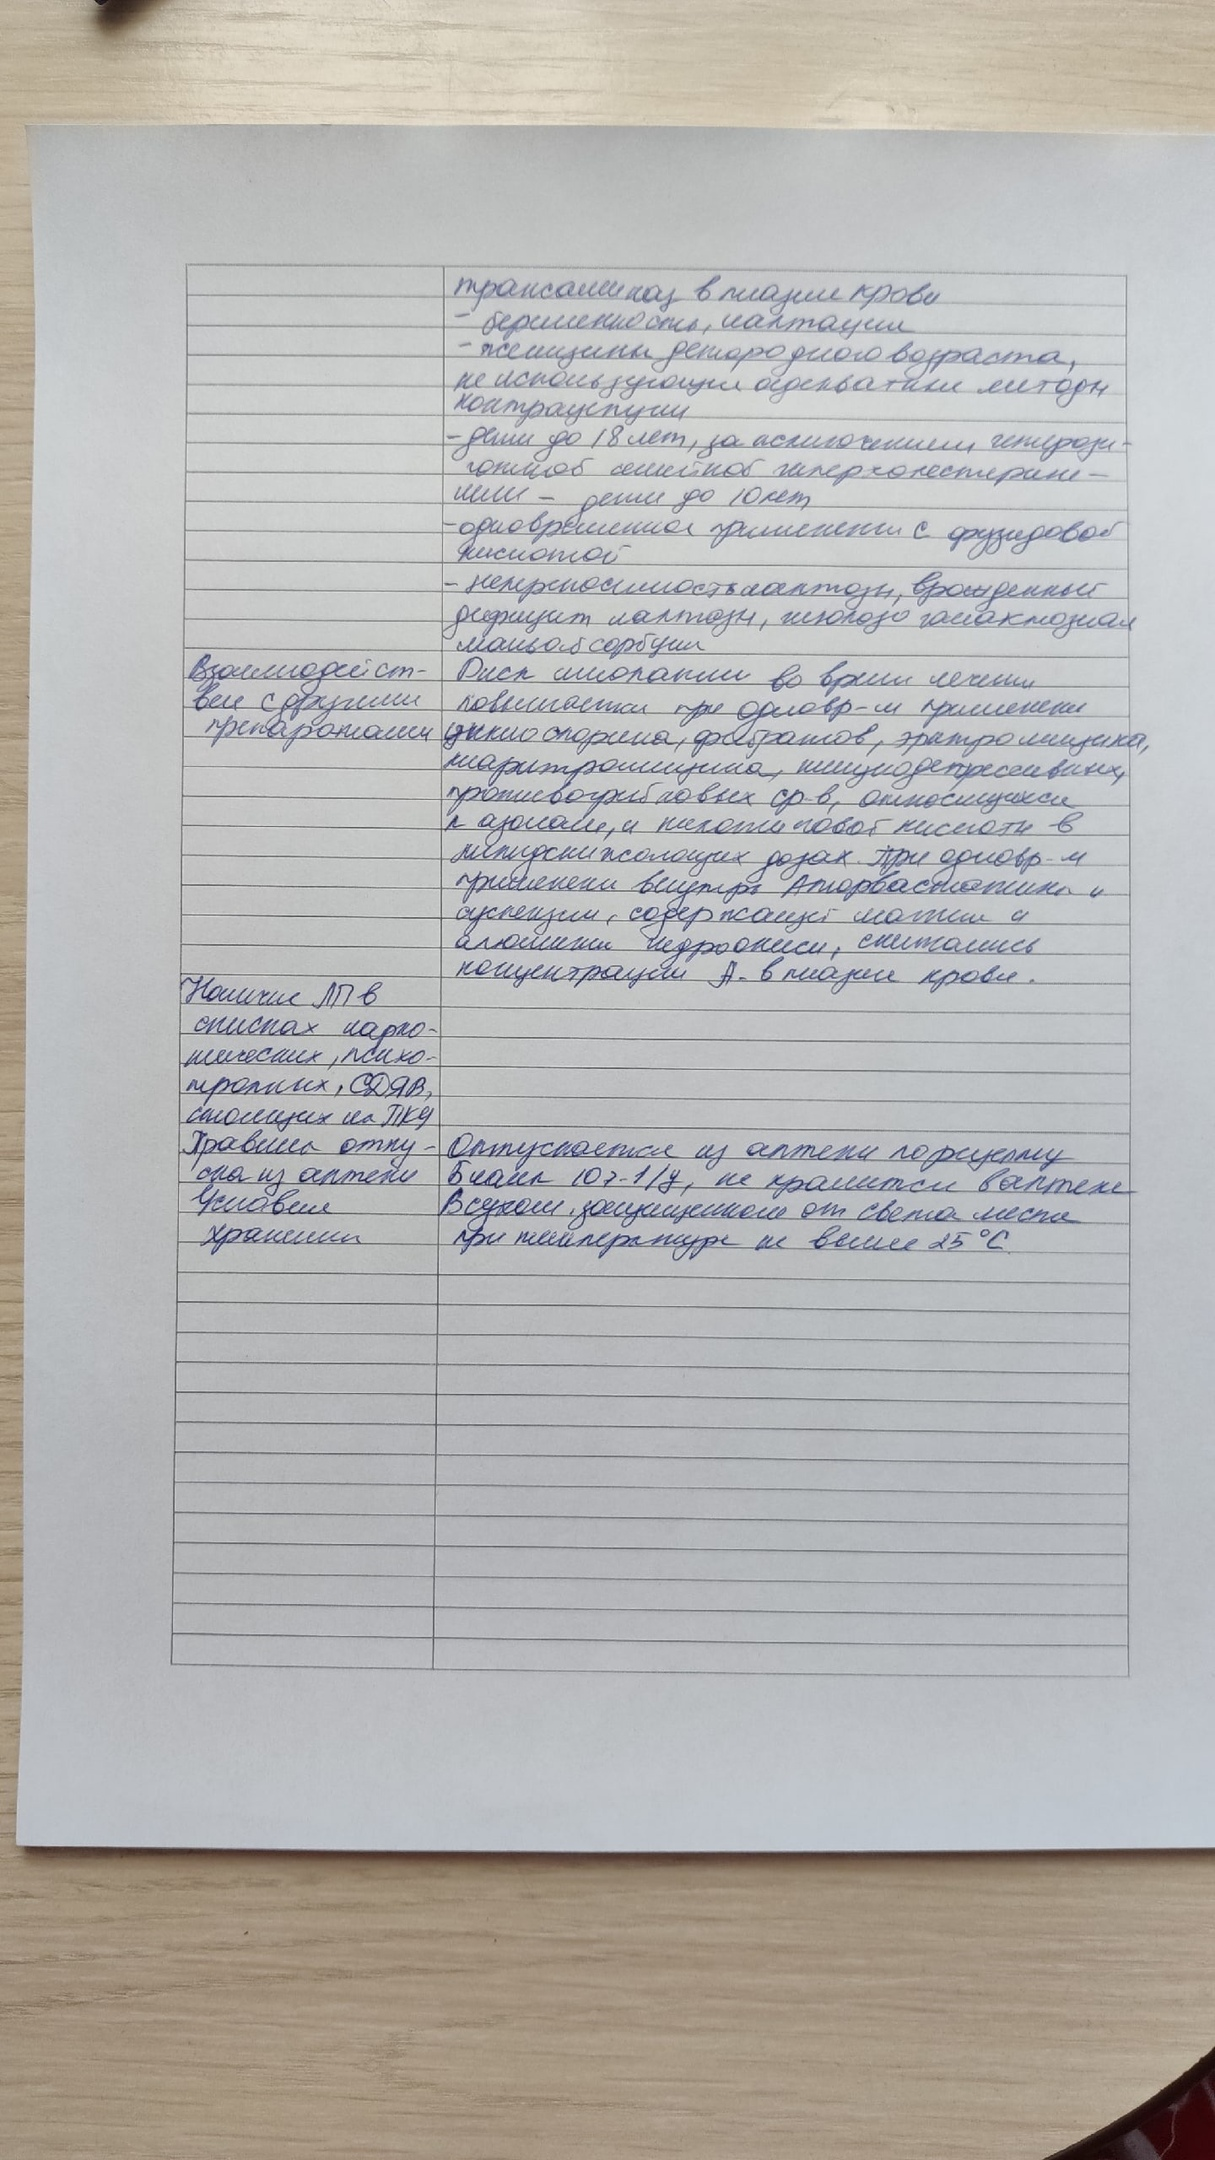 трансаминаз в плазме крови
- беременность, лактация
- женщины детородного возраста,
не использующие адекватные методы
контрацепции
- дети до 18 лет, за исключением гетерози-
готной семейной гиперхолестерине-
мии - дети до 10 лет
- одновременное применение с фузидовой
кислотой
- непереносимость лактозы, врожденный
дефицит лактозы, глюкозо галактозная
мальабсорбция
Взаимодейст- Риск миопатии во время лечения
вие с другими повышается при одновр-м применении
препаратами циклоспорина, фибратов, эритромицина,
кларитромицина, иммунодепрессивных,
противогрибковых ср-в, относящихся
к азолам, и никотиновой кислоты в
липидснижающих дозах. При одновр-м
применении внутрь Аторвастатина и
суспензии, содержащей магния и
алюминия гидроокиси, снижались
концентрации А. в плазме крови.
Наличие ЛП в
списках нарко-
тических, психо-
тропных, СДЯВ,
стоящих на ПКУ
Правила отпу- Отпускается из аптеки по рецепту
ска из аптеки Бланк 107-1/у, не хранится в аптеке
Условия В сухом, защищенном от света месте
хранения при температуре не выше 25°С